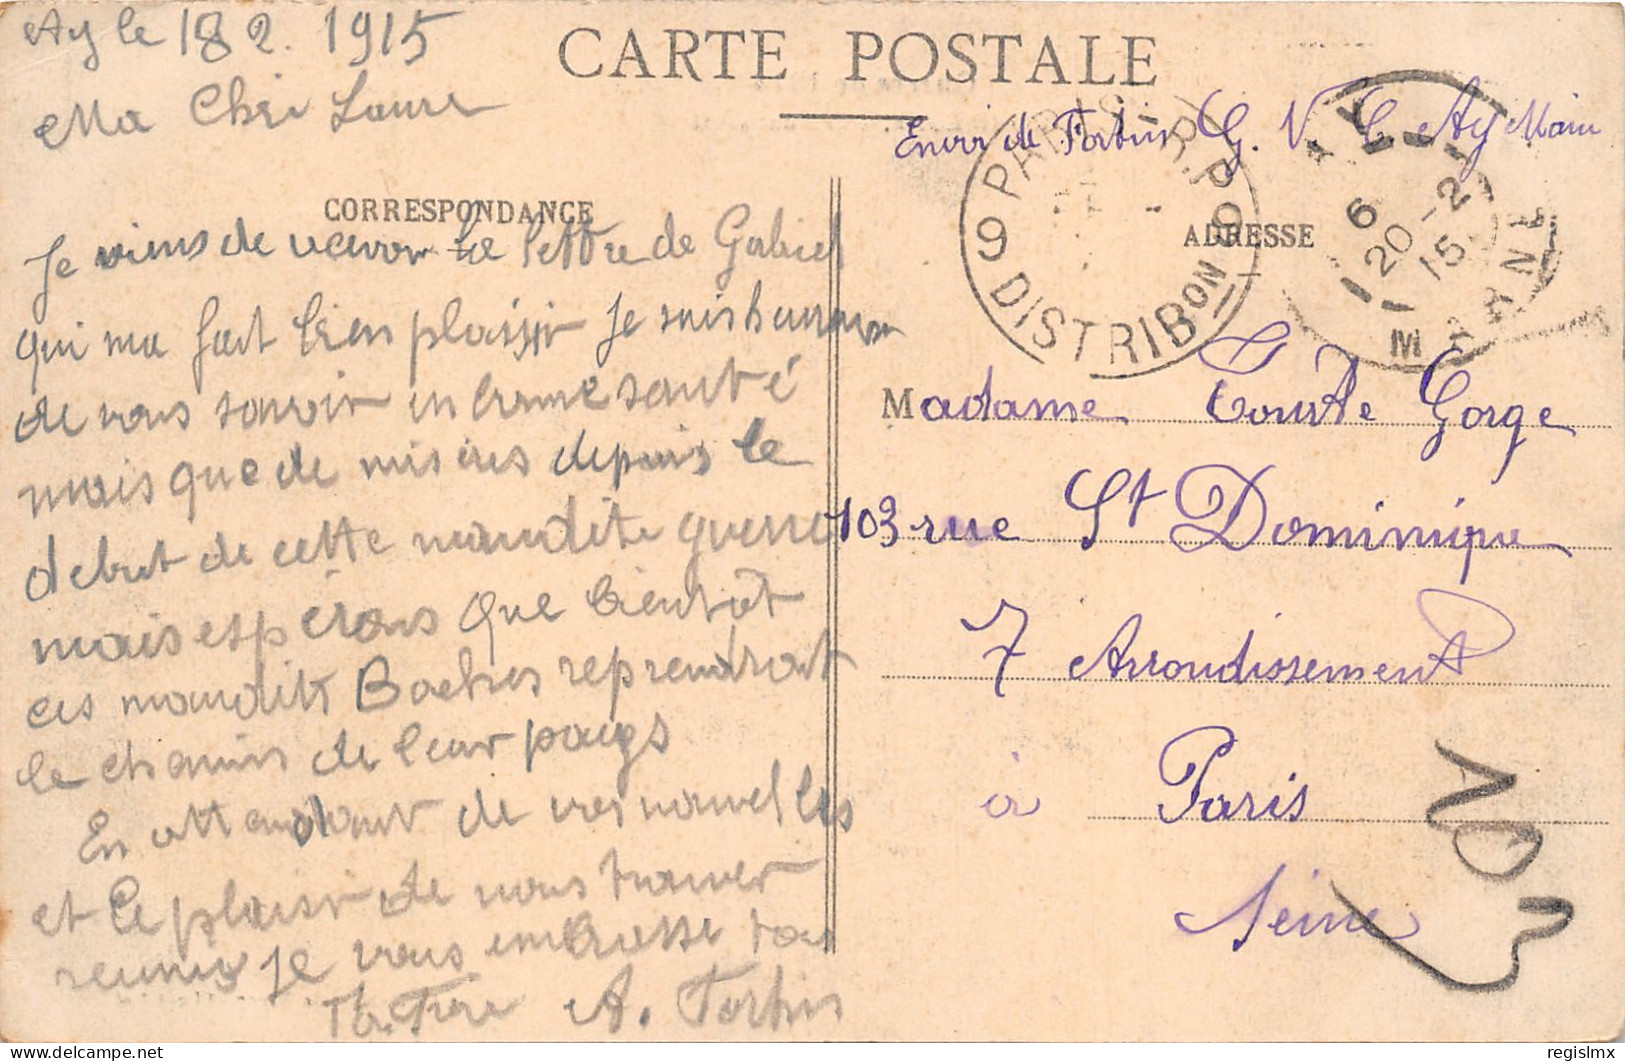 Ay le 18 2. 1915
Ma Cher Laure
CARTE POSTALE
Envoi de Forbin G. V. C. Ay Marn
CORRESPONDANCE
ADRESSE
PARIS
9 DISTRIBON
AY
6
20-2
15
MARNE
Je viens de recevoir la lettre de Gabriel
qui ma fait bien plaisir je suis heureux
de vous savoir en bonne santé
mais que de miseres depuis le
debut de cette maudite guerre
mais espérons que bientôt
ces maudits Boches reprendront
le chemin de leur pays
En attendant de vos nouvelles
et le plaisir de nous trouver
reunis je vous embrasse ton
Frere A. Forbin
Madame Courte Gorge
103 rue St Dominique
7 Arrondissement
à Paris
Seine
103
regislmx
delcampe.net